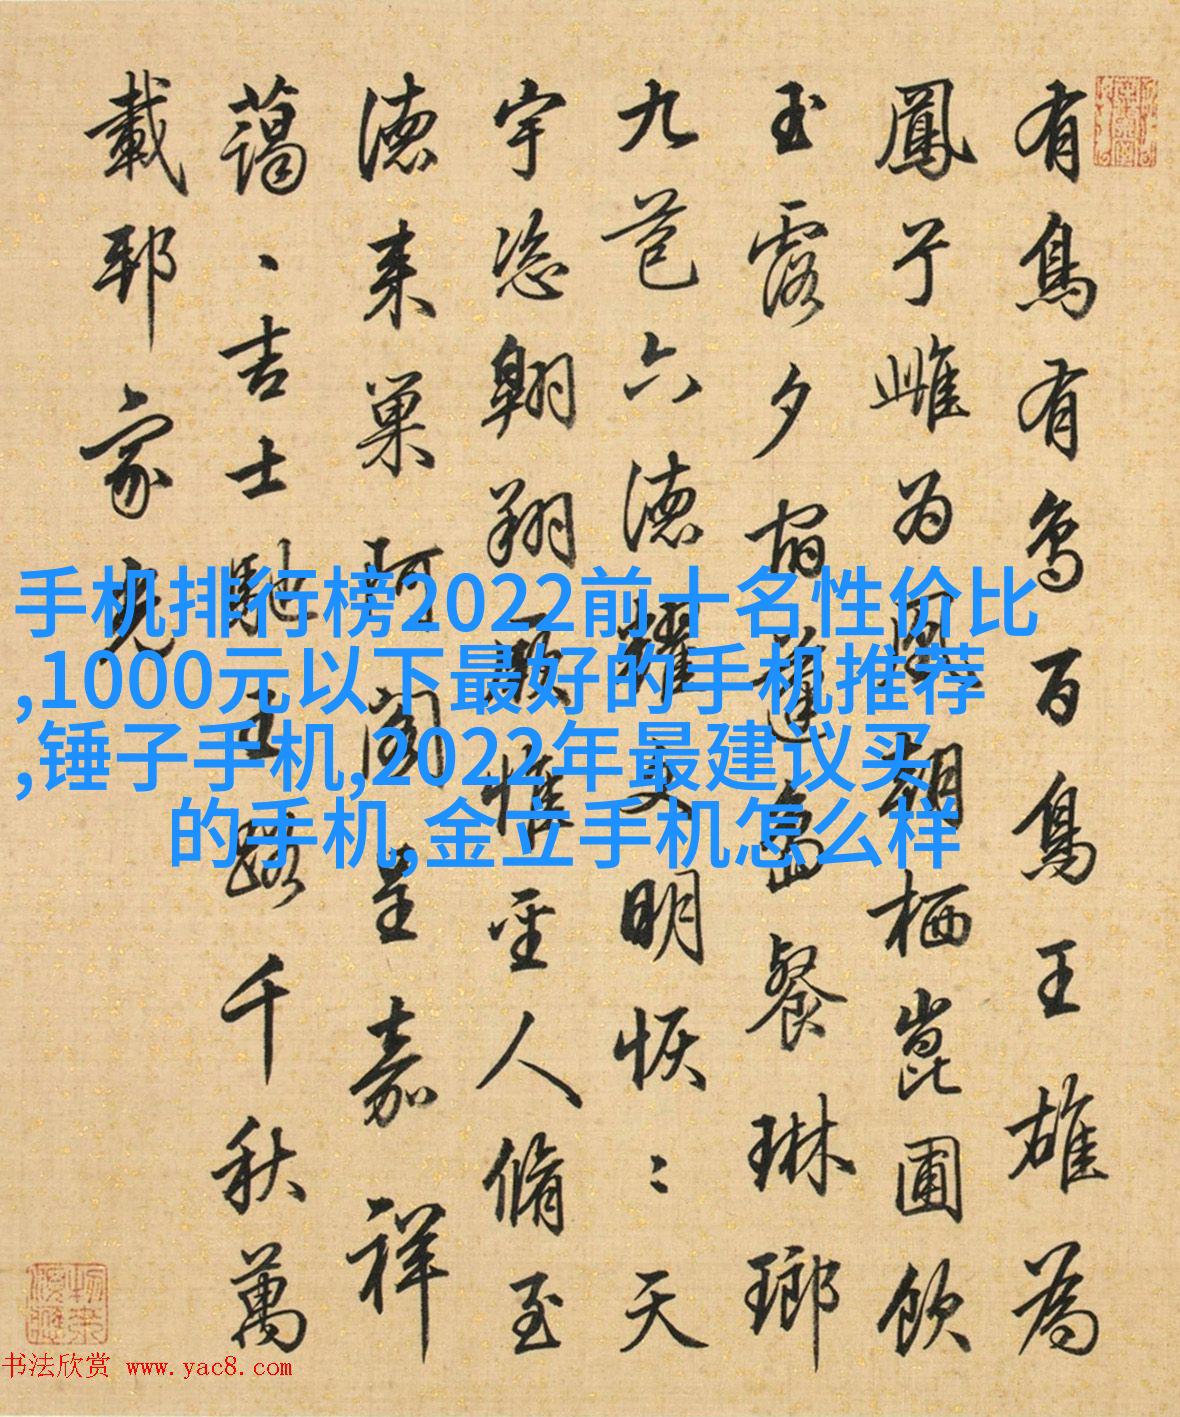 有鳥有鳥百鳥王雄為
鳳兮雌为凰朝栖崑圃飲
玉露夕宿蓬島餐琳瑯
九苞六德耀文明恢〻天
宇恣翱翔顾惟聖人脩至
德来巢阿阁呈嘉祥
藹〻吉士馳王路千秋萬
載邦家光
手机排行榜2022前十名性价比
,1000元以下最好的手机推荐
,锤子手机,2022年最建议买
的手机,金立手机怎么样
书法欣赏 www.yac8.com